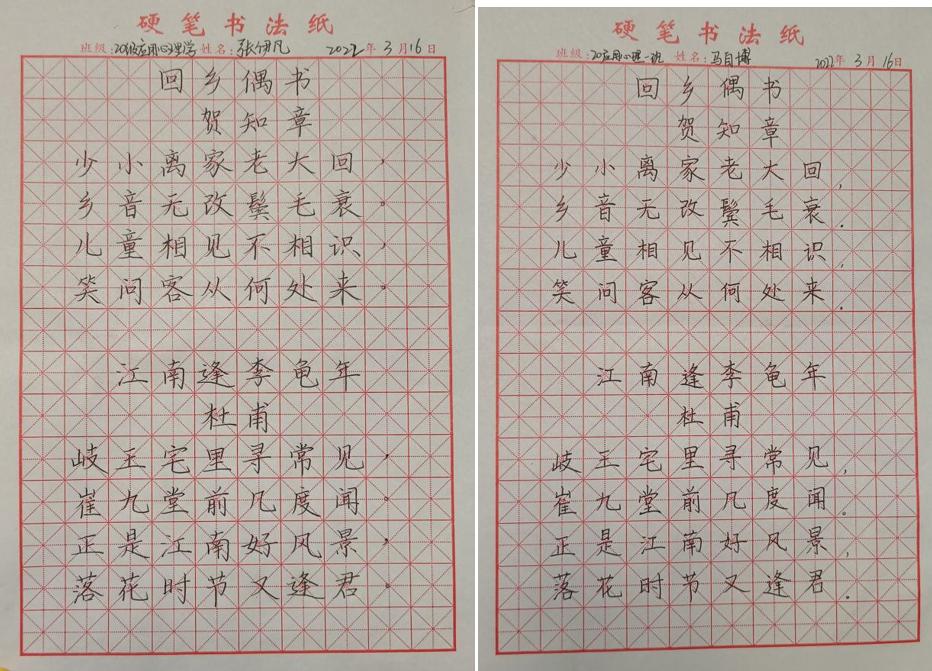 硬笔书法纸
班级：20级应用心理学 姓名：张伊凡 2022年3月16日
回乡偶书
贺知章
少小离家老大回，
乡音无改鬓毛衰。
儿童相见不相识，
笑问客从何处来。
江南逢李龟年
杜甫
岐王宅里寻常见，
崔九堂前几度闻。
正是江南好风景，
落花时节又逢君。
硬笔书法纸
班级：20应用心理一班 姓名：马自博 2022年3月16日
回乡偶书
贺知章
少小离家老大回，
乡音无改鬓毛衰.
儿童相见不相识，
笑问客从何处来.
江南逢李龟年
杜甫
岐王宅里寻常见，
崔九堂前几度闻.
正是江南好风景，
落花时节又逢君.